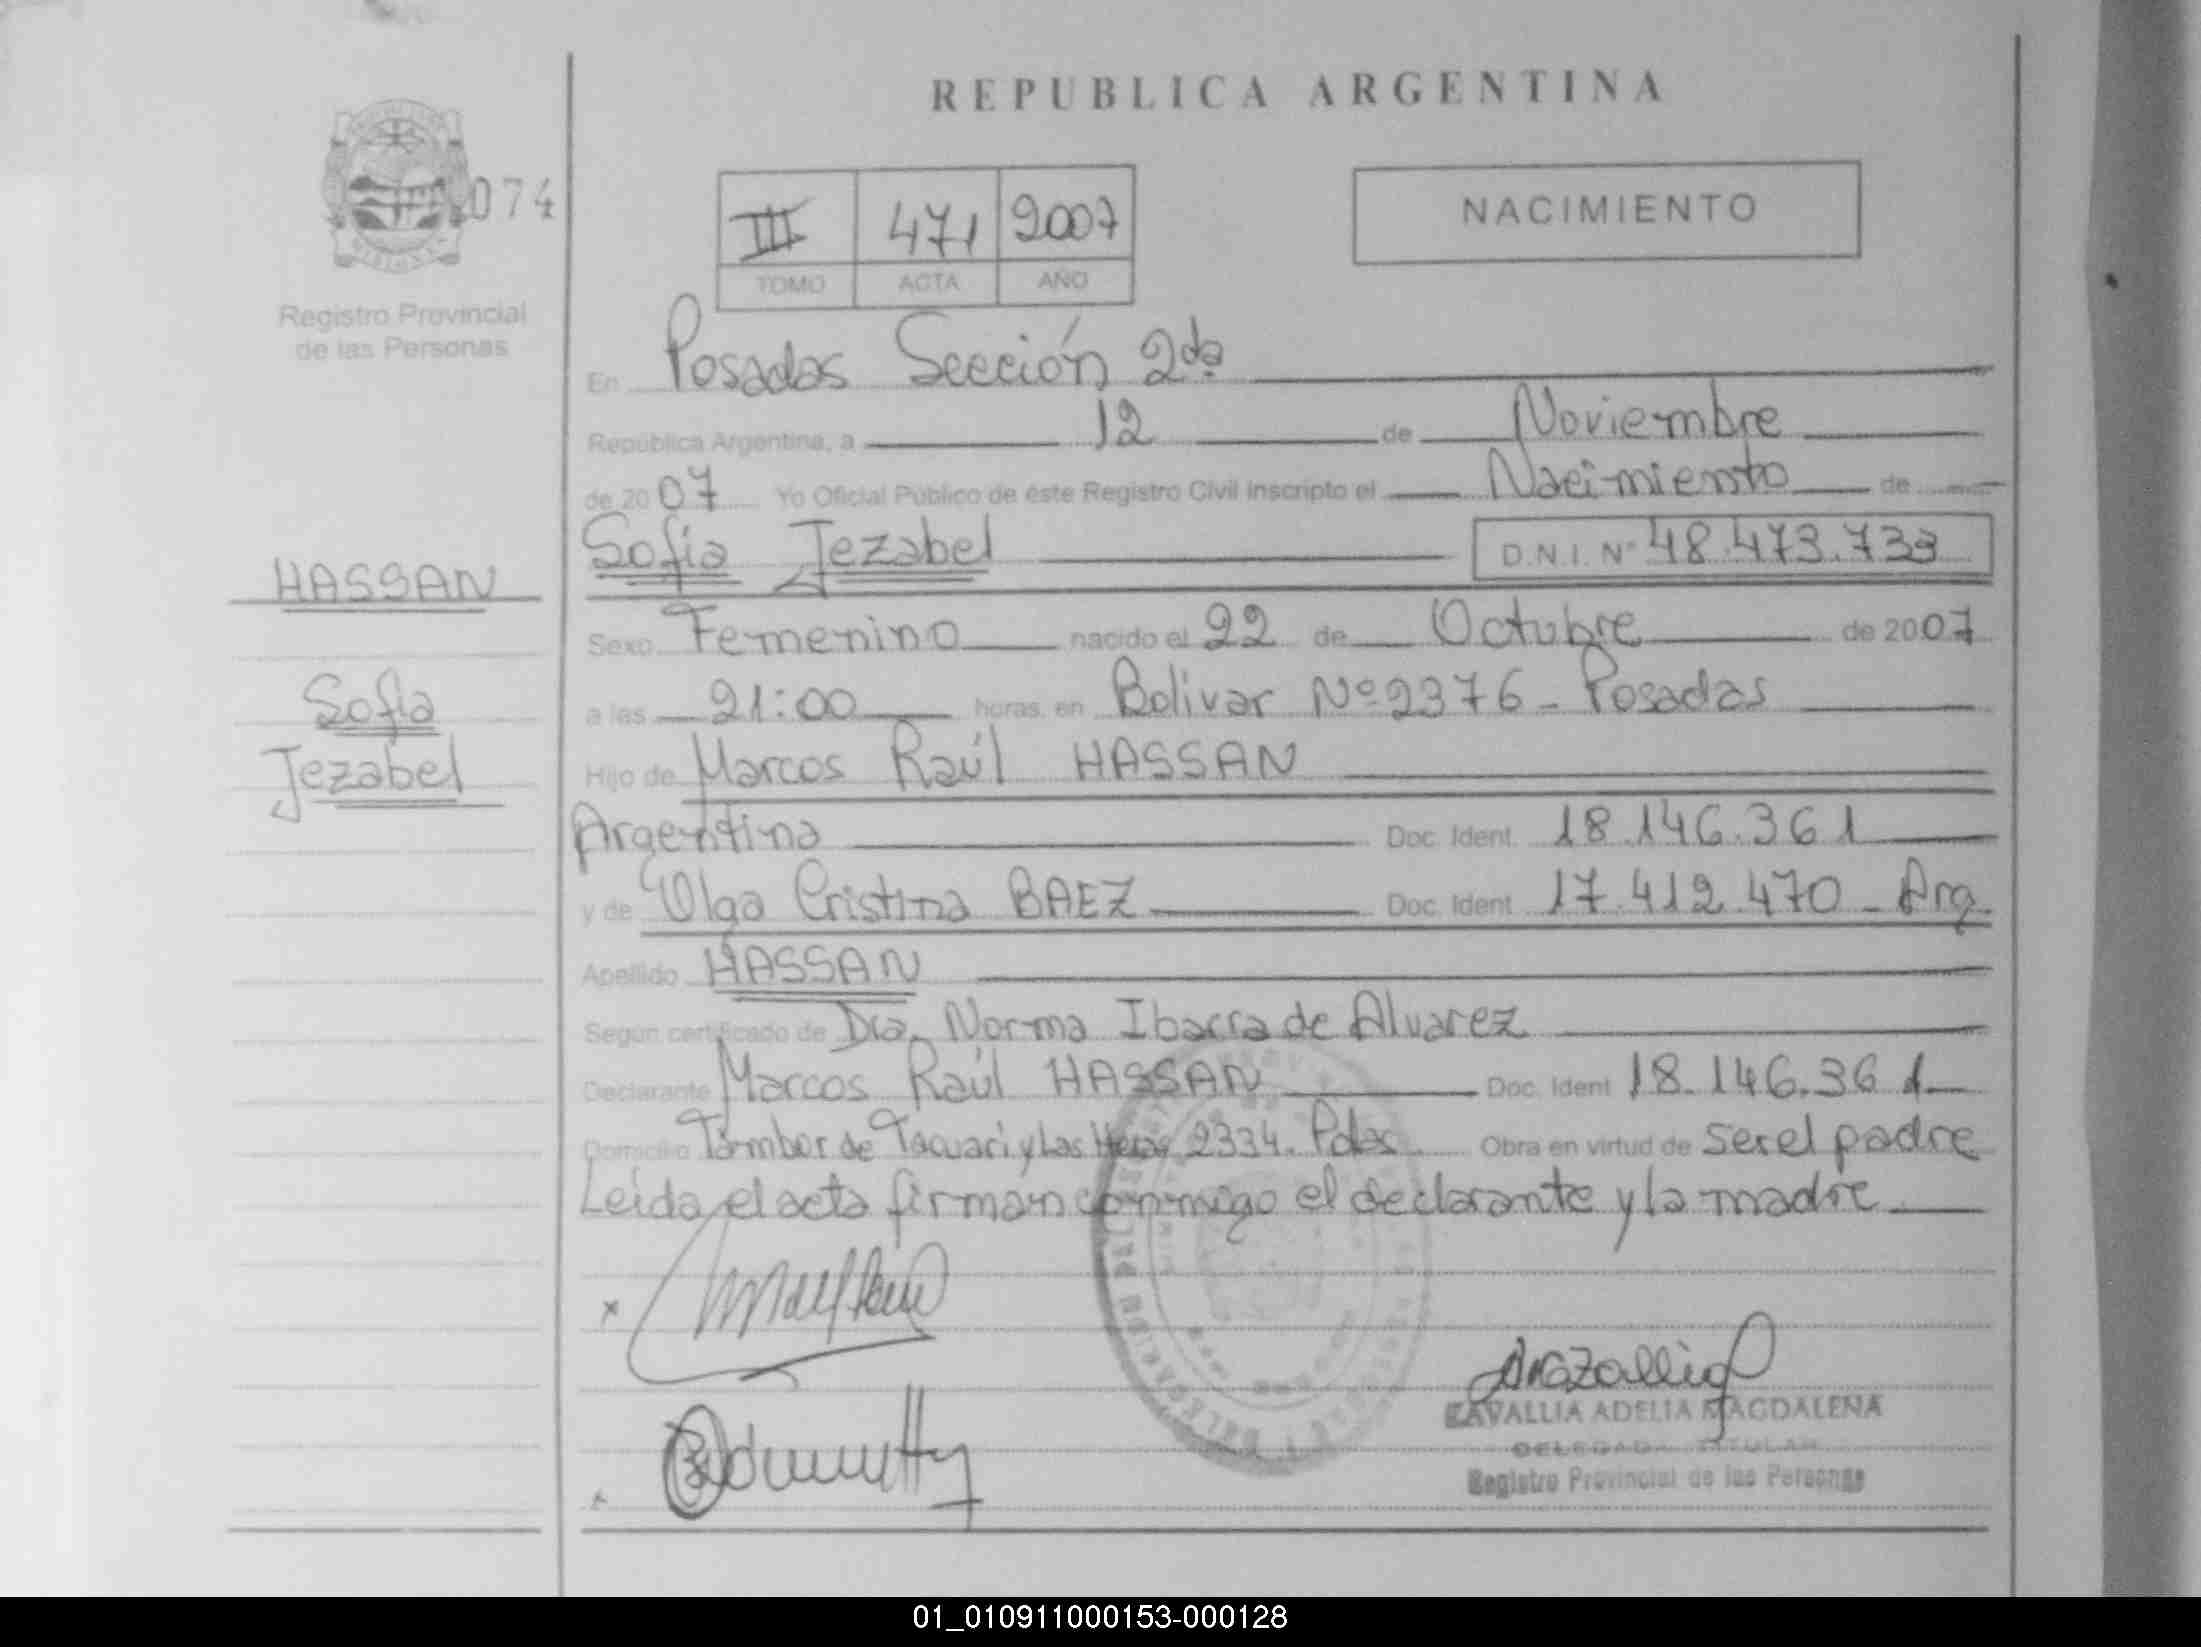 REPUBLICA ARGENTINA
074
III 471 2007
TOMO ACTA AÑO
NACIMIENTO
Registro Provincial
de las Personas
En Posadas Sección 2da
República Argentina, a 12 de Noviembre
de 2007 Yo Oficial Público de éste Registro Civil inscripto el Nacimiento de
Sofia Jezabel D.N.I. Nº 48.473.733
HASSAN
Sofia
Jezabel
Sexo Femenino nacido el 22 de Octubre de 2007
a las 21:00 horas, en Bolivar Nº 2376 - Posadas
Hijo de Marcos Raúl HASSAN
Argentina Doc. Ident. 18.146.361
y de Olga Cristina BAEZ Doc. Ident 17.412.470 - Arg.
Apellido HASSAN
Según certificado de Dra. Norma Ibarra de Alvarez
Declarante Marcos Raúl HASSAN Doc. Ident 18.146.361
Domicilio Tambor de Tacuari y Las Heras 2334. Pdas. Obra en virtud de ser el padre
Leída el acta firman conmigo el declarante y la madre
ZAVALLIA ADELIA MAGDALENA
DELEGADA TITULAR
Registro Provincial de las Personas
01_010911000153-000128